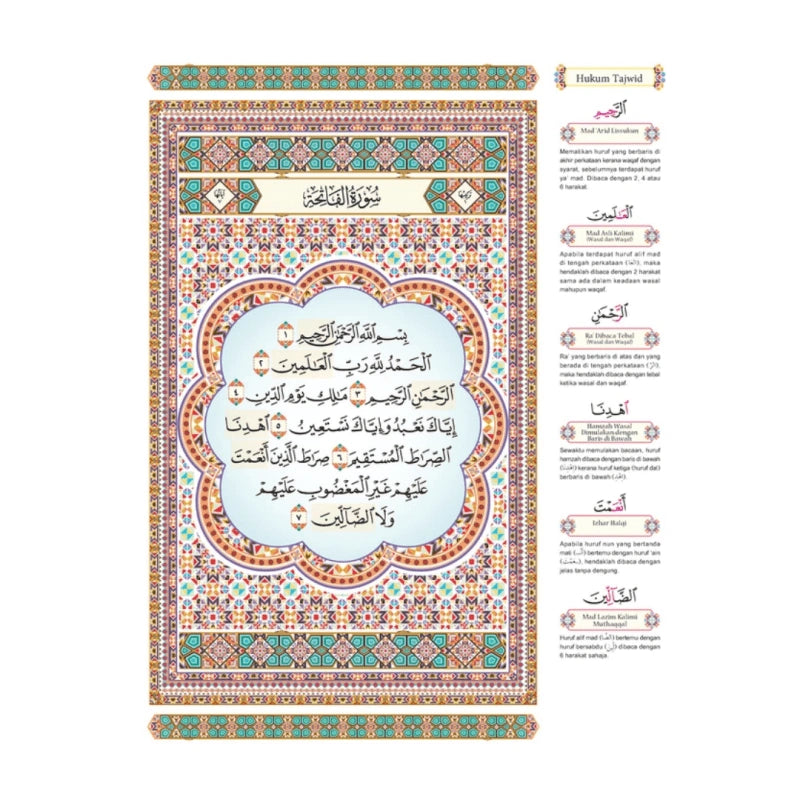 سُورَةُ الْفَاتِحَةِ
بِسْمِ اللَّهِ الرَّحْمَٰنِ الرَّحِيمِ ١
الْحَمْدُ لِلَّهِ رَبِّ الْعَالَمِينَ ٢
الرَّحْمَٰنِ الرَّحِيمِ ٣ مَالِكِ يَوْمِ الدِّينِ ٤
إِيَّاكَ نَعْبُدُ وَإِيَّاكَ نَسْتَعِينُ ٥ اهْدِنَا
الصِّرَاطَ الْمُسْتَقِيمَ ٦ صِرَاطَ الَّذِينَ أَنْعَمْتَ
عَلَيْهِمْ غَيْرِ الْمَغْضُوبِ عَلَيْهِمْ
وَلَا الضَّالِّينَ ٧
Hukum Tajwid
الرَّحِيمِ
Mad 'Arid Lissukun
Mematikan huruf yang berbaris di
akhir perkataan kerana waqaf dengan
syarat, sebelumnya terdapat huruf
ya' mad. Dibaca dengan 2, 4 atau
6 harakat.
الْعَالَمِينَ
Mad Asli Kalimi
(Wasal dan Waqaf)
Apabila terdapat huruf alif mad
di tengah perkataan, maka
hendaklah dibaca dengan 2 harakat
sama ada dalam keadaan wasal
mahupun waqaf.
الرَّحْمَٰنِ
Ra' Dibaca Tebal
(Wasal dan Waqaf)
Ra' yang berbaris di atas dan yang
berada di tengah perkataan
maka hendaklah dibaca dengan tebal
ketika wasal dan waqaf.
اهْدِنَا
Hamzah Wasal
Dimulakan dengan
Baris di Bawah
Sewaktu memulakan bacaan, huruf
hamzah dibaca dengan baris di bawah
kerana huruf ketiga (huruf dal)
berbaris di bawah
أَنْعَمْتَ
Izhar Halqi
Apabila huruf nun yang bertanda
mati bertemu dengan huruf 'ain
hendaklah dibaca dengan
jelas tanpa dengung.
الضَّالِّينَ
Mad Lazim Kalimi
Muthaqqal
Huruf alif mad bertemu dengan
huruf bersabdu dibaca dengan
6 harakat sahaja.